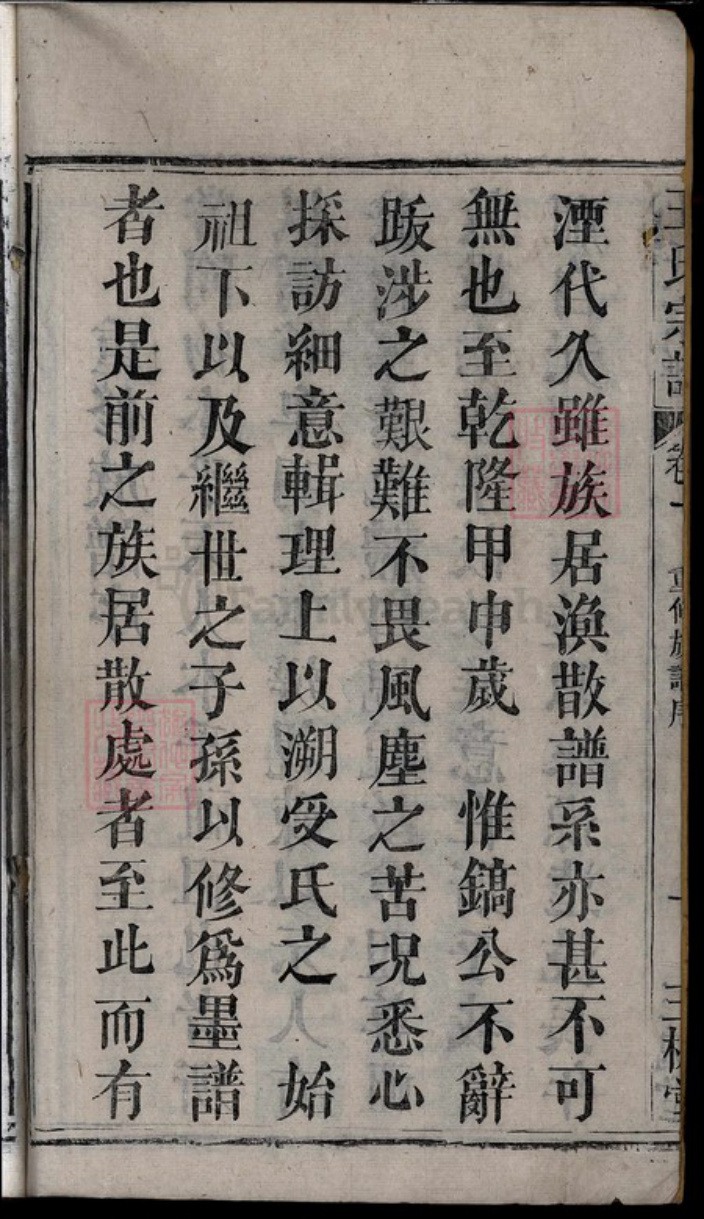 王氏宗譜 卷一 重修族譜序 一 三槐堂
湮代久雖族居渙散譜系亦甚不可
無也至乾隆甲申歲 惟鎬公不辭
跋涉之艱難不畏風塵之苦况悉心
採訪細意輯理上以溯受氏之 始
祖下以及繼世之子孫以修爲墨譜
者也是前之族居散處者至此而有